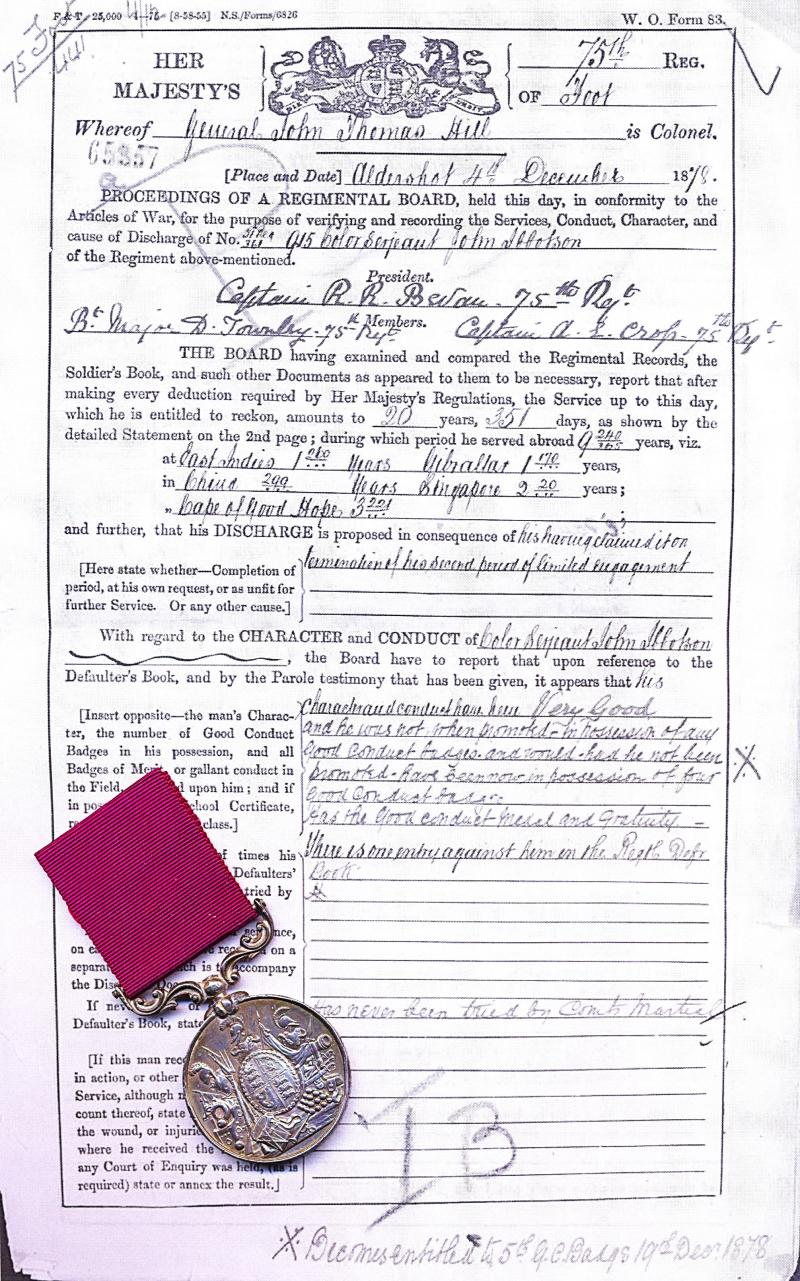 F & T 25,000 4—75 [8-58-55] N.S./Forms/6826
W. O. Form 83.
75 Foot
441
HER
MAJESTY'S
75th REG.
OF Foot
Whereof General John Thomas Hill is Colonel.
65357
[Place and Date] Aldershot 4th December 1878.
PROCEEDINGS OF A REGIMENTAL BOARD, held this day, in conformity to the
Articles of War, for the purpose of verifying and recording the Services, Conduct, Character, and
cause of Discharge of No. 915 Color Serjeant John Ibbotson
of the Regiment above-mentioned.
President.
Captain R. R. Bevan - 75th Regt.
Members.
Bt. Major D. Townley - 75th Regt. Captain A. E. Crop - 75th Regt
THE BOARD having examined and compared the Regimental Records, the
Soldier's Book, and such other Documents as appeared to them to be necessary, report that after
making every deduction required by Her Majesty's Regulations, the Service up to this day,
which he is entitled to reckon, amounts to 20 years, 351 days, as shown by the
detailed Statement on the 2nd page; during which period he served abroad 9 240/365 years, viz.
at East Indies 1 260 Years Gibraltar 1 170 years,
in China 299 Years Singapore 2 20 years;
" Cape of Good Hope 3 221 ;
and further, that his DISCHARGE is proposed in consequence of his having claimed it on
termination of his second period of limited engagement
[Here state whether—Completion of
period, at his own request, or as unfit for
further Service. Or any other cause.]
With regard to the CHARACTER and CONDUCT of Color Serjeant John Ibbotson
, the Board have to report that upon reference to the
Defaulter's Book, and by the Parole testimony that has been given, it appears that his
character and conduct have been Very Good
and he was not, when promoted - in possession of any
Good Conduct badges - and would - had he not been
promoted - have been now in possession of four
Good Conduct badges.
Has the Good Conduct Medal and Gratuity -
[Insert opposite—the man's Charac-
ter, the number of Good Conduct
Badges in his possession, and all
Badges of Merit, or gallant conduct in
the Field, upon him; and if
in pos School Certificate,
class.]
There is one entry against him in the Regtl Defr
Book
of times his
Defaulters'
tried by
on a
separat is to accompany
the Dis
If nev or
Defaulter's Book, stat
Has never been tried by Courts Martial
[If this man rec
in action, or other
Service, although n
count thereof, state
the wound, or injuri
where he received the
any Court of Enquiry was held, (as is
required) state or annex the result.]
IB
※ Becomes entitled to 5th G.C. Badge 19th Decr. 1878